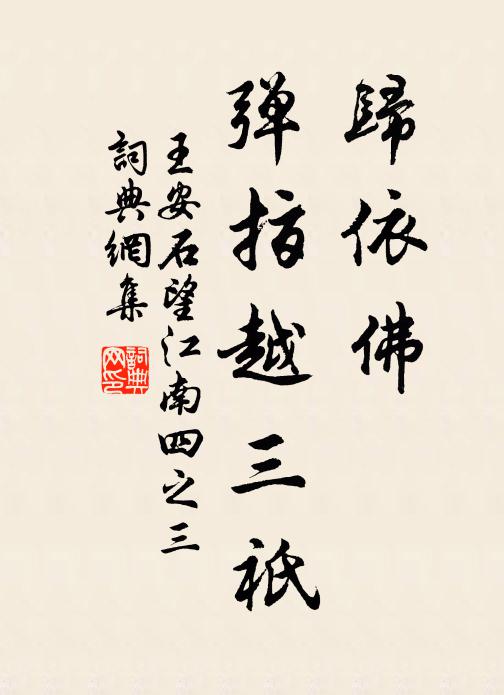 歸依佛
弹指越三祇
王安石望江南四之三
詞典網集
詞典网印